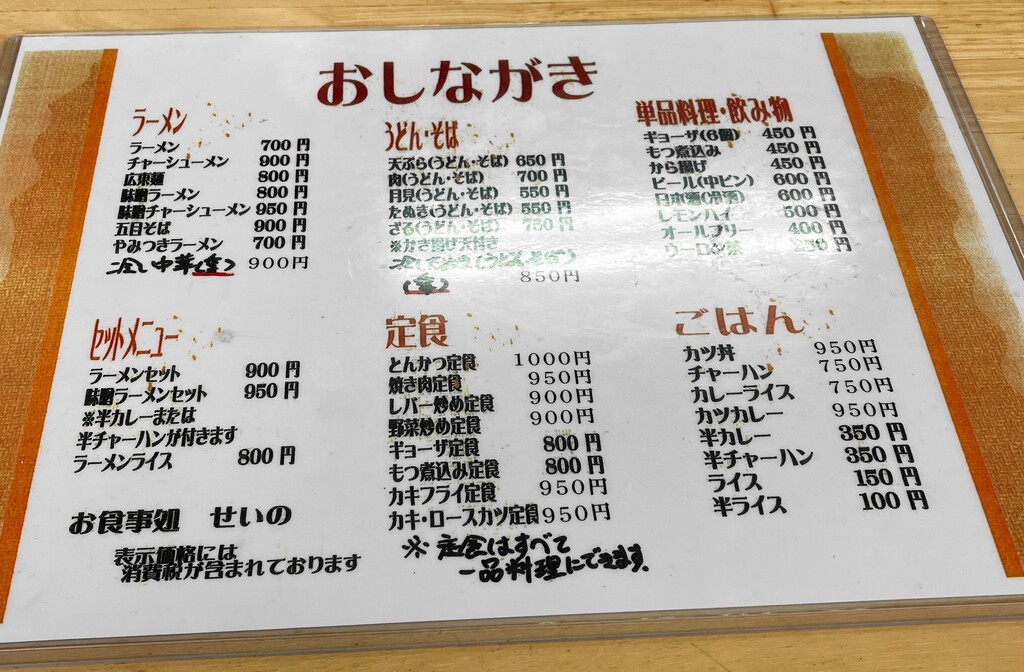 おしながき
ラーメン
ラーメン 700円
チャーシューメン 900円
広東麺 800円
味噌ラーメン 800円
味噌チャーシューメン 950円
五目そば 900円
やみつきラーメン 700円
冷し中華(夏) 900円
うどん・そば
天ぷら(うどん・そば) 650円
肉(うどん・そば) 700円
月見(うどん・そば) 550円
たぬき(うどん・そば) 550円
ざる(うどん・そば) 750円
※かき揚げ天付き
冷したぬき(うどん・そば)
(夏) 850円
単品料理・飲み物
ギョーザ(6個) 450円
もつ煮込み 450円
から揚げ 450円
ビール(中ビン) 600円
日本酒(冷酒) 600円
レモンハイ 500円
オールフリー 400円
ウーロン茶 250円
セットメニュー
ラーメンセット 900円
味噌ラーメンセット 950円
※半カレーまたは
半チャーハンが付きます
ラーメンライス 800円
定食
とんかつ定食 1000円
焼き肉定食 950円
レバー炒め定食 900円
野菜炒め定食 900円
ギョーザ定食 800円
もつ煮込み定食 800円
カキフライ定食 950円
カキ・ロースカツ定食 950円
※定食はすべて
一品料理にできます。
ごはん
カツ丼 950円
チャーハン 750円
カレーライス 750円
カツカレー 950円
半カレー 350円
半チャーハン 350円
ライス 150円
半ライス 100円
お食事処 せいの
表示価格には
消費税が含まれております